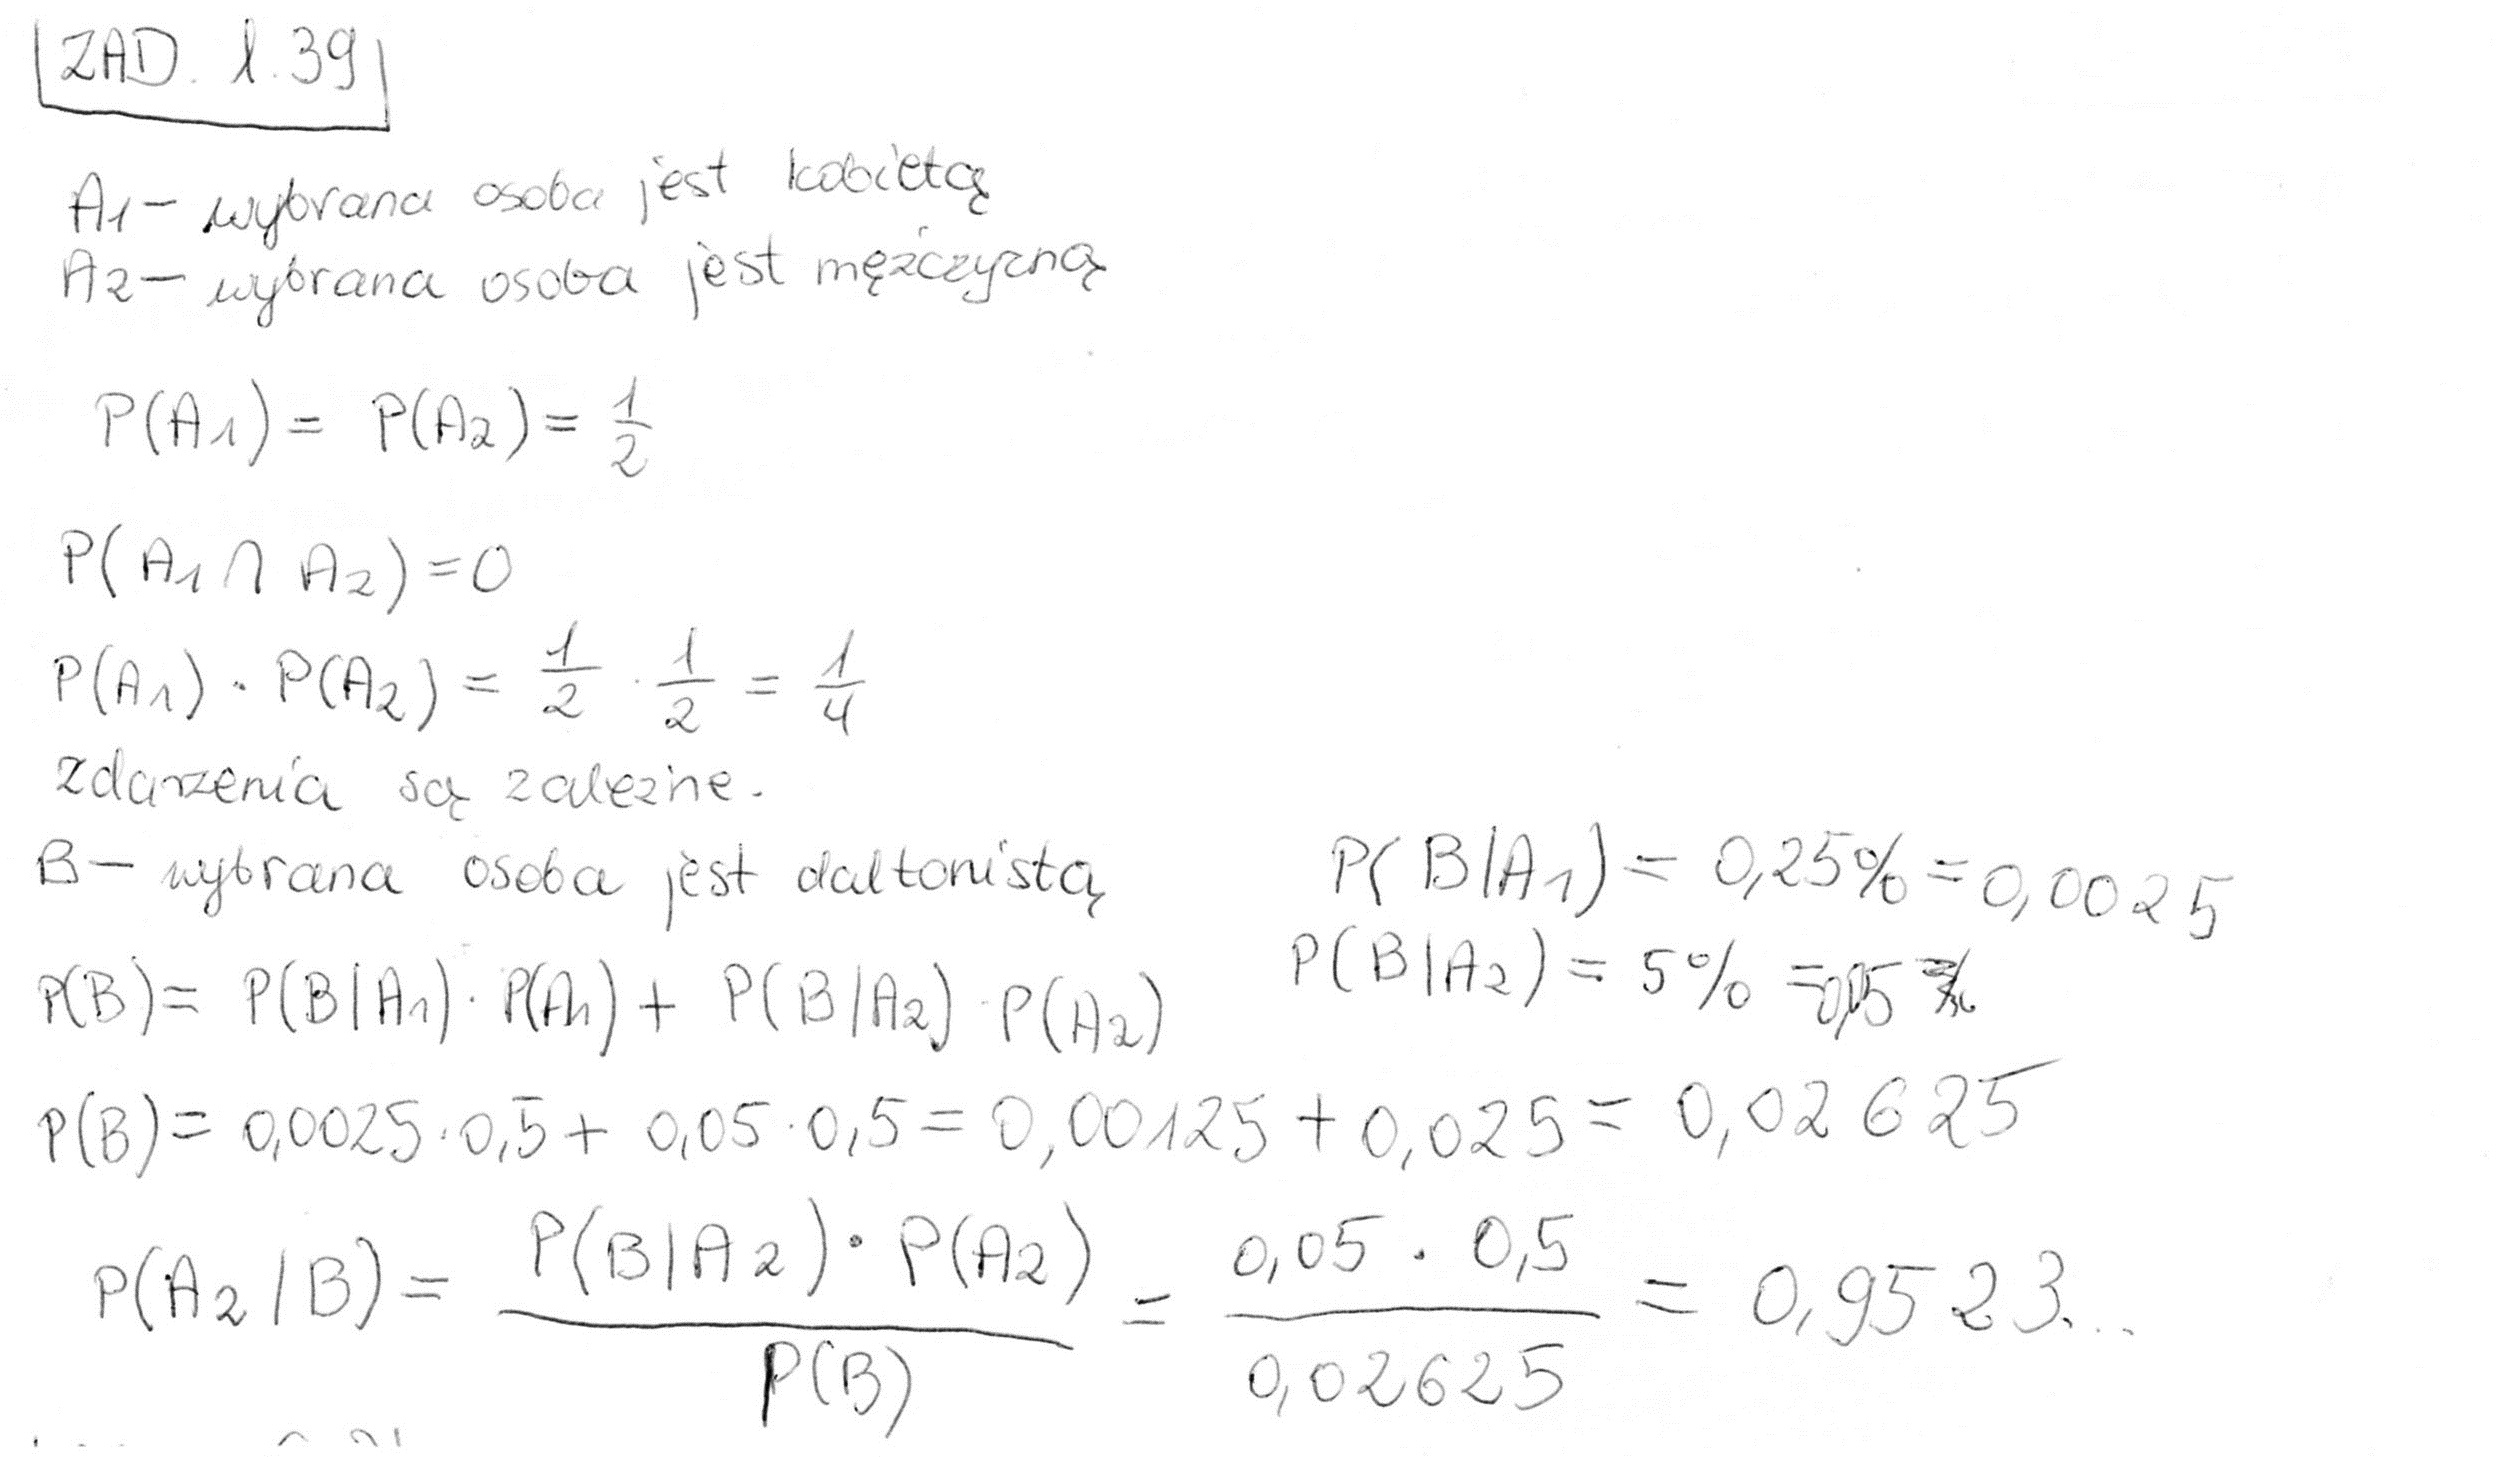 ZAD. 1.39
A1 - wybrana osoba jest kobietą
A2 - wybrana osoba jest mężczyzną
P(A1) = P(A2) = 1/2
P(A1 ∩ A2) = 0
P(A1) · P(A2) = 1/2 · 1/2 = 1/4
Zdarzenia są zależne.
B - wybrana osoba jest daltonistą
P(B|A1) = 0,25% = 0,0025
P(B|A2) = 5% = 0,05
P(B) = P(B|A1) · P(A1) + P(B|A2) · P(A2)
P(B) = 0,0025 · 0,5 + 0,05 · 0,5 = 0,00125 + 0,025 = 0,02625
P(A2/B) = P(B|A2) · P(A2) / P(B) = 0,05 · 0,5 / 0,02625 = 0,9523...